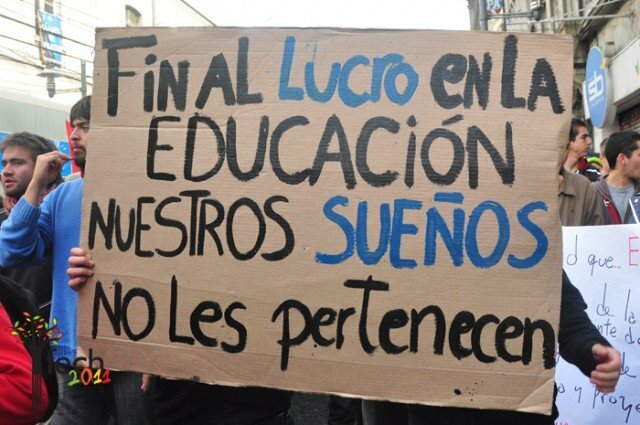 FINAL LUCRO EN LA
EDUCACIÓN
NUESTROS SUEÑOS
NO LES pertenecen
sb
d que... E
de la
de
y proye
fech
2011